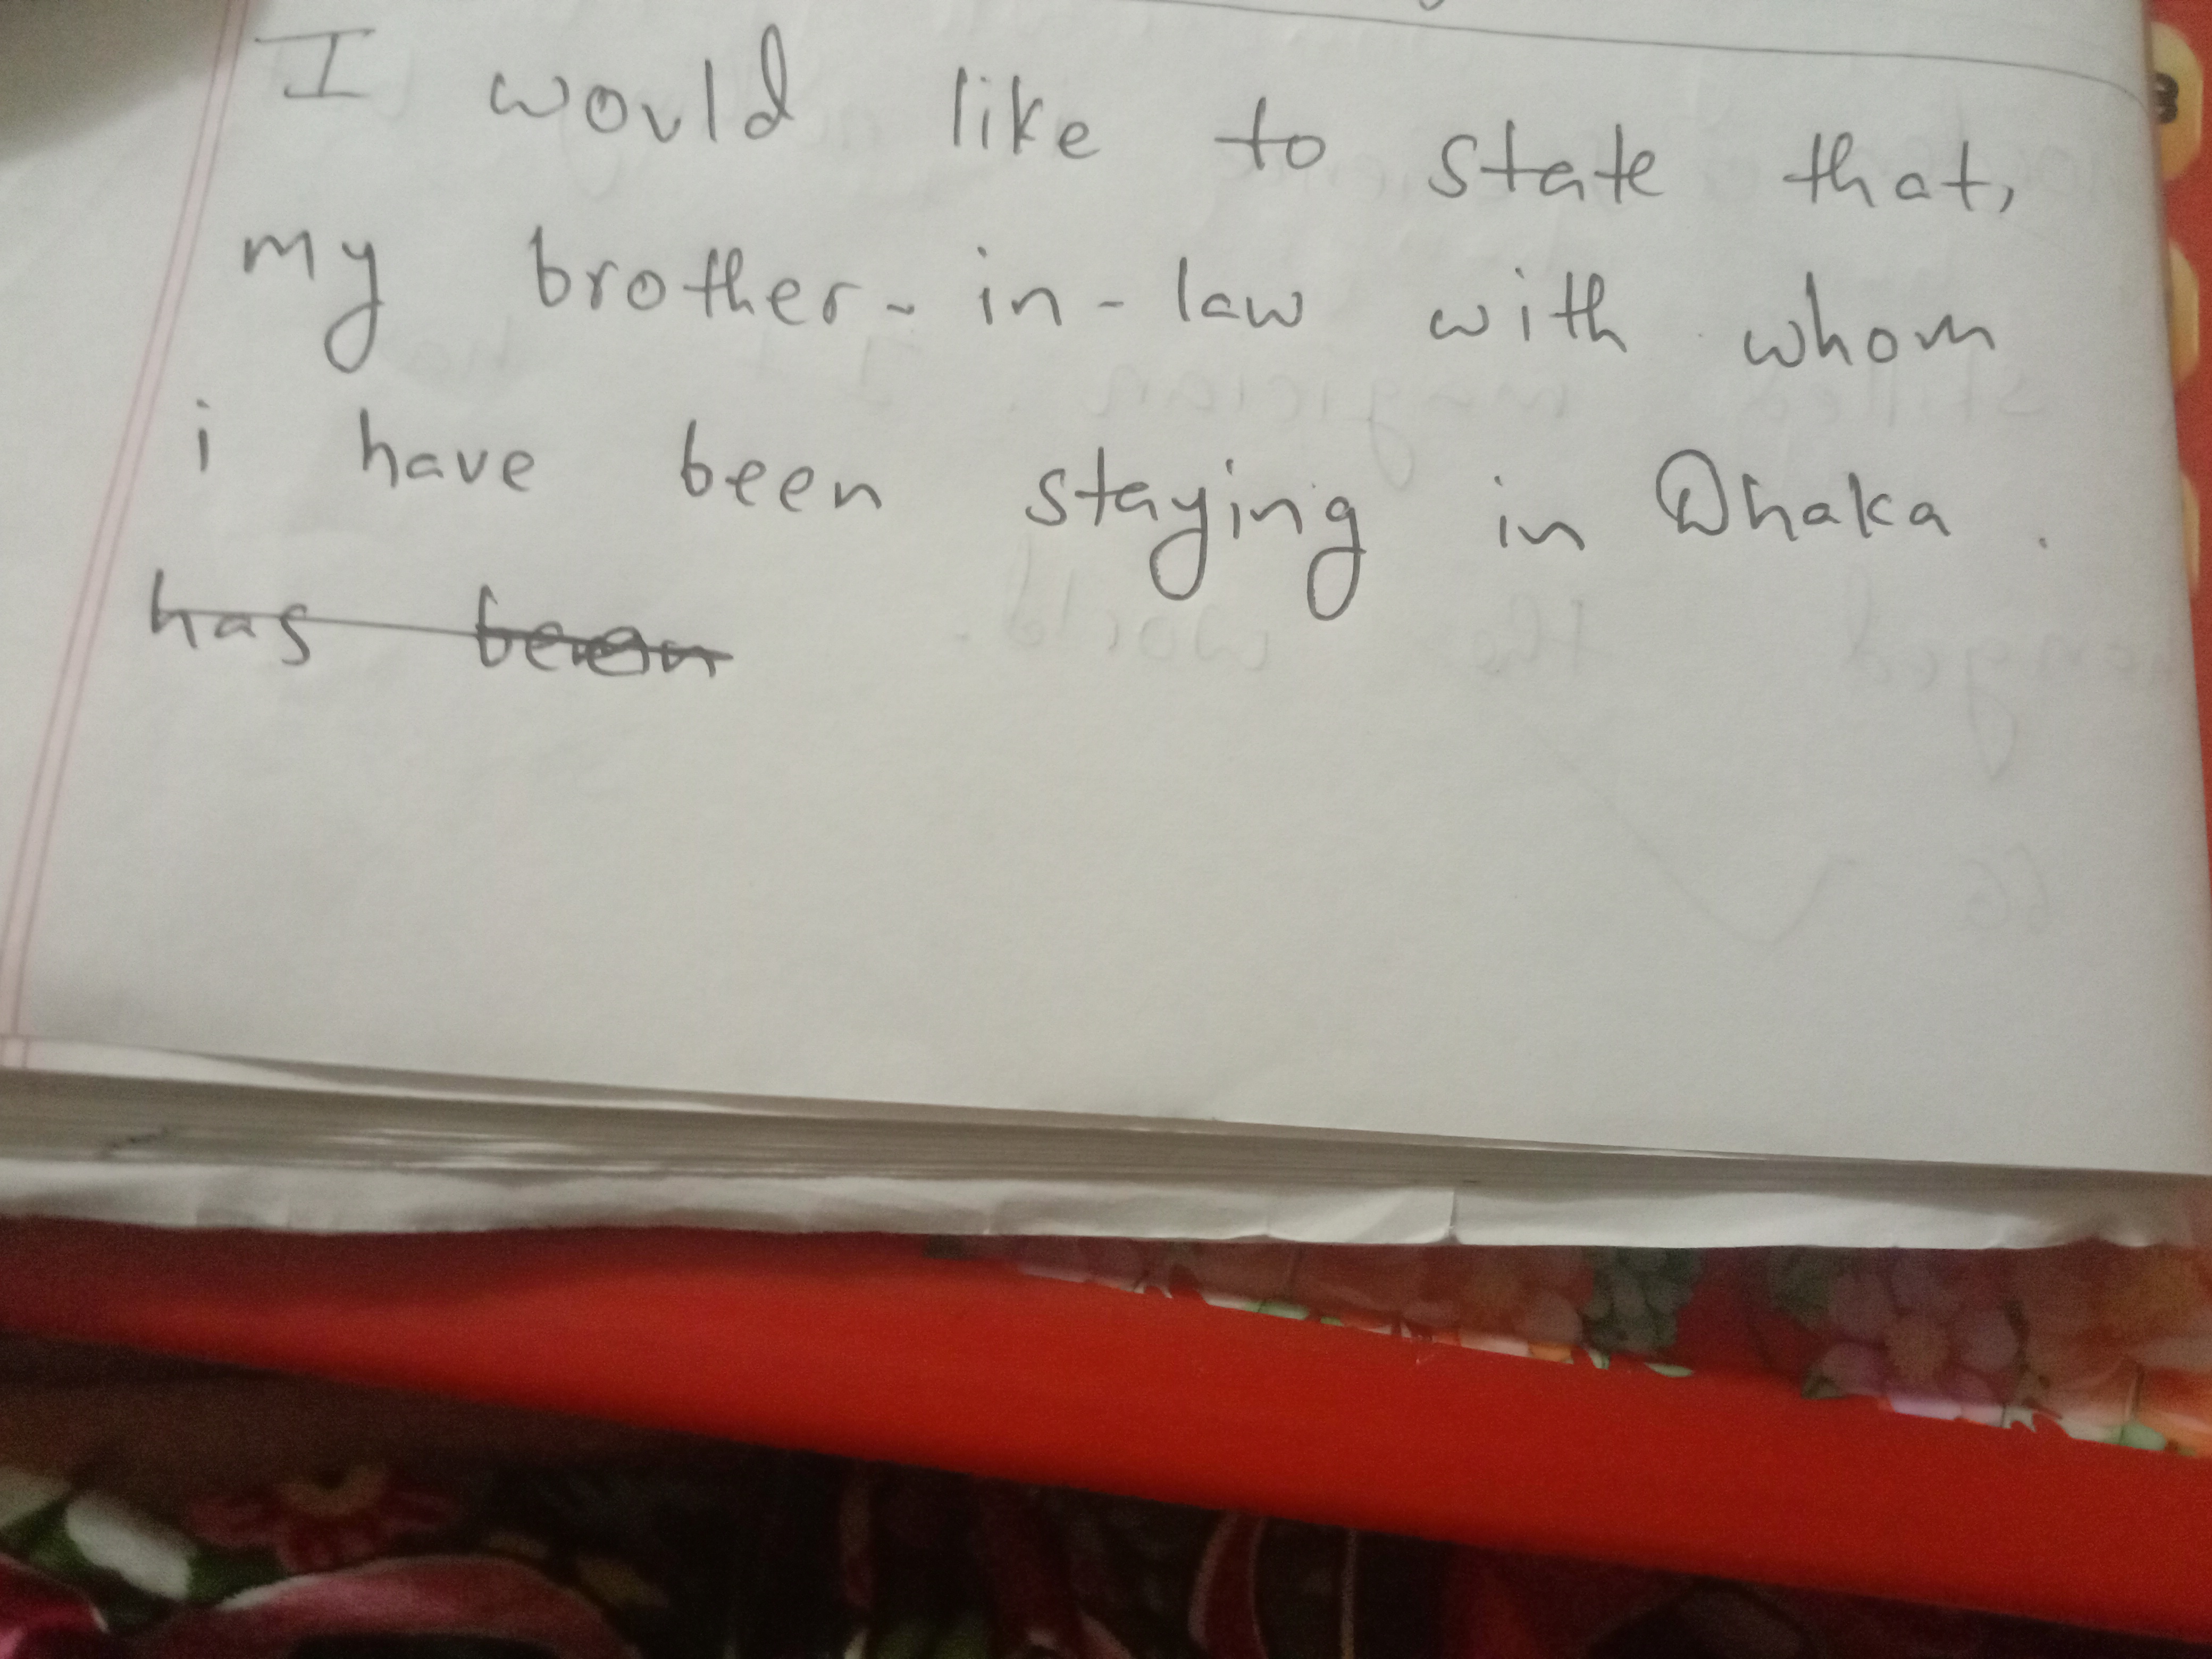 I would like to state that,
my brother-in-law with whom
i have been staying in Dhaka.
has been